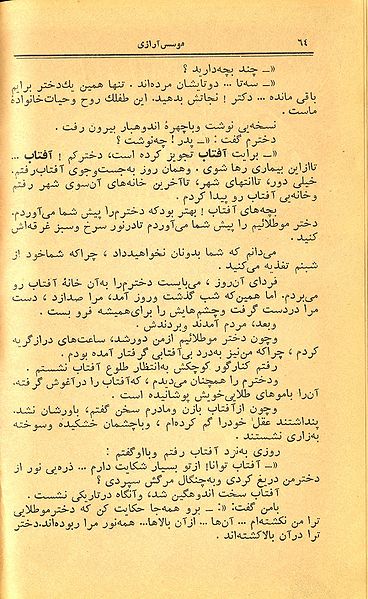 ۶۴ هوسسی‌آرازی
«ــ چند بچه‌دارید ؟
«ــ سه‌تا ... دوتایشان مرده‌اند . تنها همین یك‌دختر برایم
باقی مانده ... دکتر ! نجاتش بدهید. این طفلك روح وحیات‌خانوادهٔ
ماست .
نسخه‌یی نوشت وباچهرهٔ اندوهبار بیرون رفت .
دخترم گفت : «ــ پدر! چه‌نوشت ؟
«ــ برایت آفتاب تجویز کرده است، دخترکم ! آفتاب ...
تاازاین بیماری رها شوی . وهمان روز به‌جست‌وجوی آفتاب‌رفتم.
خیلی دور، تاانتهای شهر، تاآخرین خانه‌های آن‌سوی شهر رفتم
وخانه‌یی آفتاب رو پیدا کردم .
بچه‌های آفتاب ! بهتر بودکه دخترم‌را پیش شما می‌آوردم.
دختر موطلائیم را پیش شما می‌آوردم تادرنور سرخ وسبز غرقه‌اش
کنید .
می‌دانم که شما بدونان نخواهیدداد ، چراکه شماخود از
شبنم تغذیه می‌کنید .
فردای آن‌روز ، می‌بایست دخترم‌را به‌آن خانهٔ آفتاب رو
می‌بردم. اما همین‌که شب گذشت وروز آمد، مرا صدازد ، دست
مرا دردست گرفت وچشم‌هایش را برای‌همیشه فرو بست .
وبعد، مردم آمدند وبردندش .
وچون دختر موطلائیم ازمن دورشد، ساعت‌های درازگریه
کردم ، چراکه من‌نیز به‌درد بی‌آفتابی گرفتار آمده بودم .
رفتم کنارگور کوچکش به‌انتظار طلوع آفتاب نشستم .
ودخترم را همچنان می‌دیدم ، که‌آفتاب را درآغوش گرفته.
آن‌را باموهای طلایی‌خویش پوشانیده است .
وچون ازآفتاب بازن ومادرم سخن گفتم، باورشان نشد.
پنداشتند عقل خودرا گم کرده‌ام ، وباچشمان خشکیده وسوخته
به‌زاری نشستند .
روزی به‌نزد آفتاب رفتم وبااوگفتم :
«ــ آفتاب توانا! ازتو بسیار شکایت دارم ... ذره‌یی نور از
دخترمن دریغ کردی وبه‌چنگال مرگش سپردی ؟
آفتاب سخت اندوهگین شد، وآنگاه درتاریکی نشست .
بامن گفت: «ــ برو همه‌جا حکایت کن که دخترموطلایی
ترا من نکشته‌ام ... آن‌ها ... ازآن بالاها... همه‌نور مرا ربوده‌اند.دختر
ترا درآن بالاکشته‌اند .